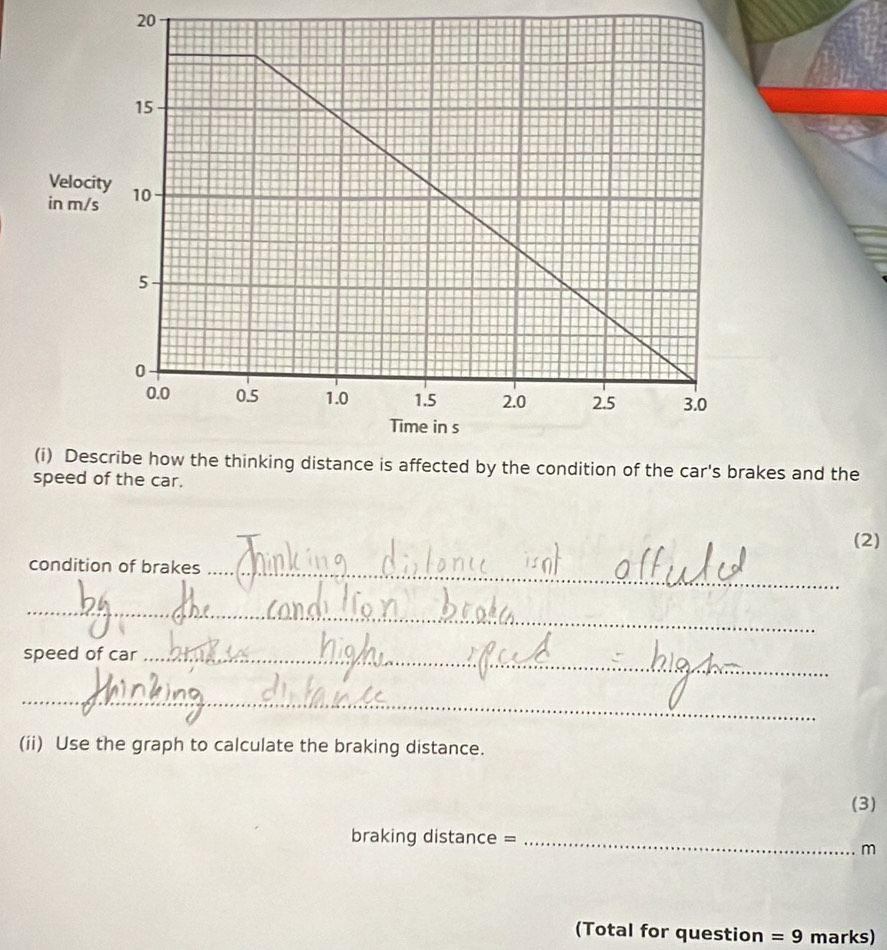 20
15
Velocity
in m/s
10
5
0
0.0 0.5 1.0 1.5 2.0 2.5 3.0
Time in s
(i) Describe how the thinking distance is affected by the condition of the car's brakes and the
speed of the car.
(2)
condition of brakes Thinking distance isnt
by the condition
speed of car speed = high
thinking distance
(ii) Use the graph to calculate the braking distance.
(3)
braking distance = m
(Total for question = 9 marks)